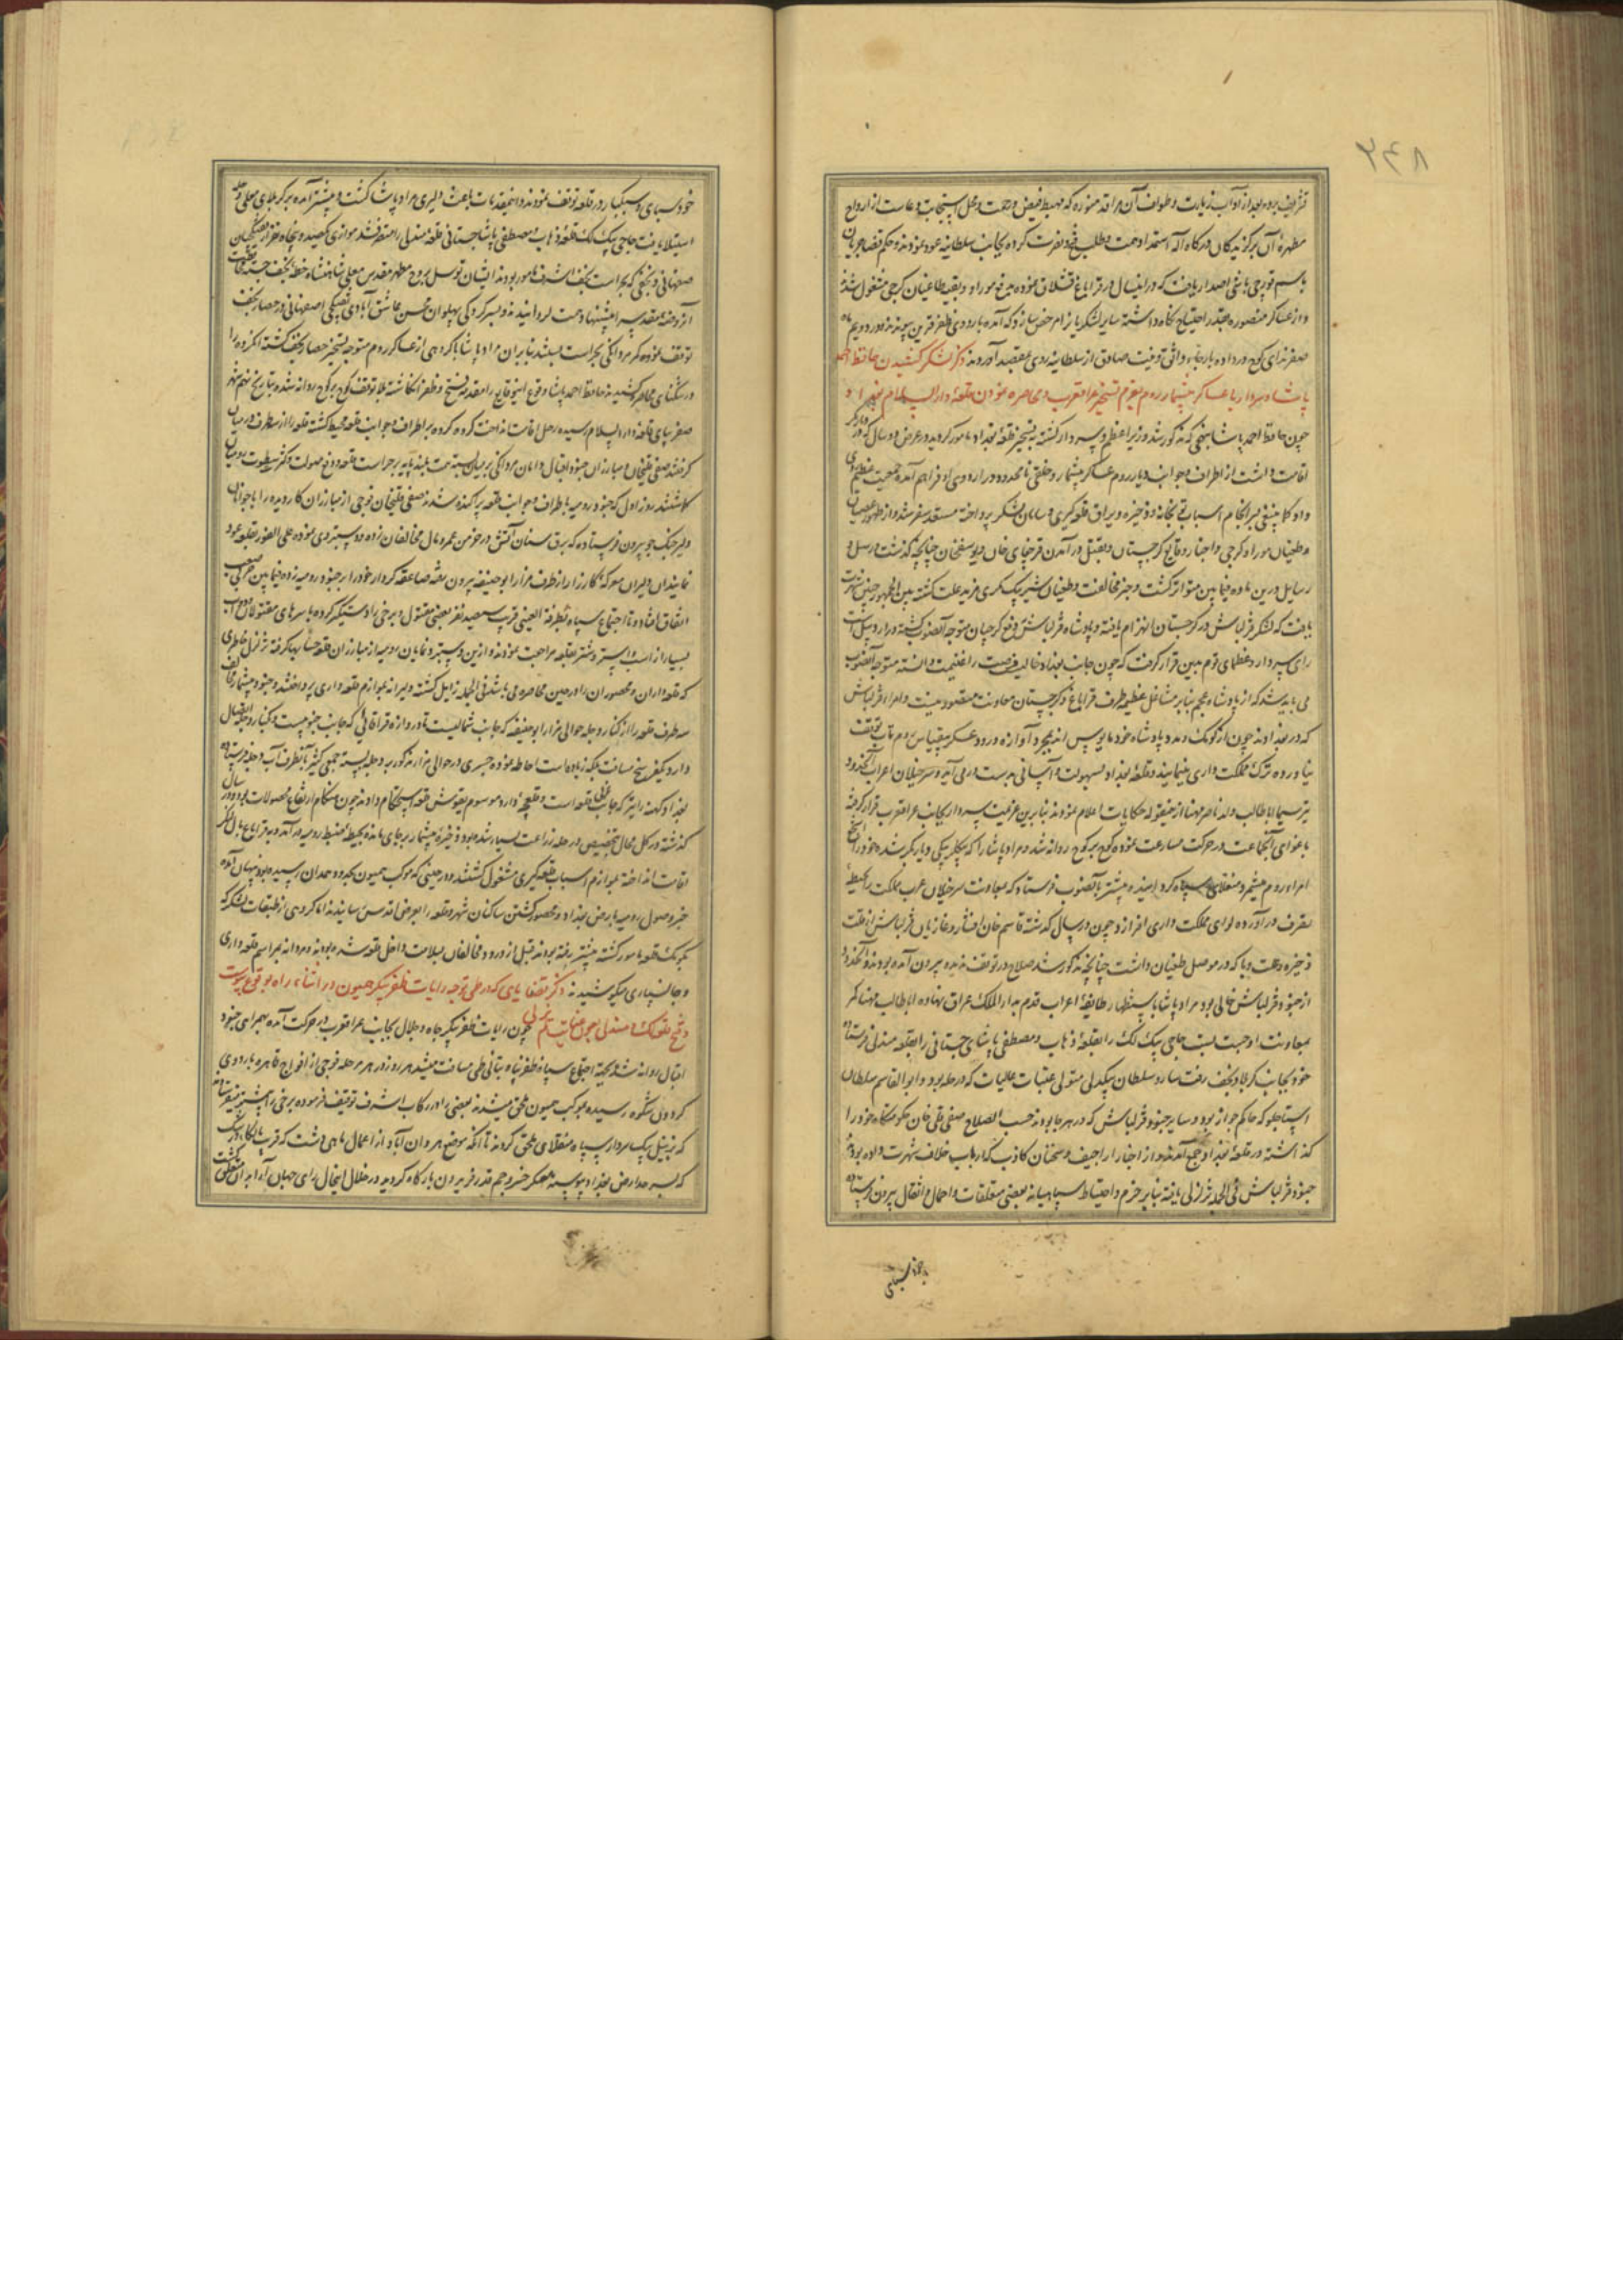 ۸۶۲
تشریف برده بعد از آداب زیارت و طواف آن مراقد منوره که مهبط فیض و رحمت و محل استجابت دعاست از ارواح
مطهرهٔ آن برگزیدگان درگاه اله استمداد همت و طلب فتح و نصرت کرده بجانب سلطانیه عود نمودند و حکم قضا جریان
باسم قورچی باشی اصدار یافت که در اینسال در قراباغ قشلاق نموده بدفع موراو و بقیه طاغیان گرجی مشغول شده
و از عساکر منصوره آنقدر احتیاج نگاه داشته سایر لشکریانرا مرخص سازد که آمده باردوی ظفر قرین پیوندند و در دویم ماه
صفر ندای کوچ در داده بارجاء واثق و نیت صادق از سلطانیه روی بمقصد آوردند ذکر لشکر کشیدن حافظ احمد
پاشاء سردار با عساکر بیشمار روم بعزم تسخیر عراق عرب و محاصره نمودن قلعهٔ دارالسلام بغداد
چون حافظ احمد پاشا بنهجی که مذکور شد وزیر اعظم و سردار گشته به تسخیر قلعهٔ بغداد مامور گردید در عرض دو سال که در دیاربکر
اقامت داشت از اطراف و جوانب دیار روم عساکر بیشمار و خلقی نامحدود در اردوی او فراهم آمده جمعیت عظیم روی
داد کما ینبغی بسرانجام اسباب توپخانه و ذخیره و یراق قلعه گیری و سامان لشکر پرداخته مستعد سفر شد و از ظهور عصیان
و طغیان موراو گرجی و اخبار وقایع گرجستان و بقتل درآمدن قرچقای خان و یوسفخان چنانچه گذشت و رسل و
رسایل درین ماده فیما بین متواتر گشت و جنز مخالفت و طغیان شیر بیک مکری مزید علت گشته بین الجمهور چنین شهرت
یافت که لشکر قزلباش در گرجستان انهزام یافته و پادشاه قزلباش بدفع گرجیان متوجه آنصوب گشته در اردبیل است
رای سردار و عظمای قوم برین قرار گرفت که چون جانب بغداد خالیست فرصت را غنیمت دانسته متوجه آنصوب
می باید شد که از پادشاه عجم بنابر مشاغل عظیمه طرف قراباغ و گرجستان معاونت مقصود نیست و امراء قزلباش
که در بغدادند چون از کومک و مدد پادشاه خود مایوس اند بمجرد آوازه ورود عسکر بیقیاس روم تاب توقف
نیاورده ترک مملکت داری مینمایند و قلعهٔ بغداد بسهولت و آسانی بدست درمی آید و سرخیلان اعراب آنحدود
نیز سیما اباطالب ولد ناصر مهنا از ینمقوله حکایات اعلام نمودند بنابرین عزیمت سردار بجانب عراق عرب قرار گرفته
باغوای آنجماعت در حرکت مسارعت نموده کوچ بر کوچ روانه شد و مراد پاشا را که بیکلربیکی دیاربکر شده خود را از
امراء روم میشمرد منقلای سپاه گردانیده پیشتر بآنصوب فرستاد که بمعاونت سرخیلان عرب مملکت را بحیطهٔ
تصرف درآورده لوای مملکت داری افرازد و چون در سال گذشته قاسم خان افشار و غازیان قزلباش از قلت
ذخیره و علت وبا که در موصل طغیان داشت چنانچه مذکور شد صلاح در توقف ندیده بیرون آمده بودند و آنحدود
از جنود قزلباش خالی بود مراد پاشا باستظهار طایفهٔ اعراب قدم بدارالملک عراق نهاده اباطالب مهنا کمر
بمعاونت او چست بست حاجی بیک لک را بقلعهٔ ذهاب و مصطفی پاشای جستانی را بقلعه مندلی فرستاده
خود بجانب کربلا و نجف رفت سارو سلطان بیکدلی متولی عتبات عالیات که در حله بود و ابوالقاسم سلطان
استاجلو که حاکم جوازر بود و سایر جنود قزلباش که در هر جا بودند حسب الصلاح صفی قلی خان حکومتگاه خود را
گذاشته در قلعهٔ بغداد جمع آمدند و از اخبار اراجیف و سخنان کاذب که ارباب خلاف شهرت داده بودند
جنود قزلباش فی الجمله تزلزلی یافته بنابر حزم و احتیاط سپاهیانه بعضی متعلقات و احمال و اثقال بیرون فرستاده
خود سبای و سبکبار در قلعه توقف نمودند و اینمقدمات باعث دلیری مراد پاشا گشت و پیشتر آمده بر کربلای معلی و حله
استیلا یافت حاجی بیک لک قلعهٔ ذهاب و مصطفی پاشا جستانی قلعهٔ مندلی را متصرف شد موازی یکصد و پنجاه نفر از تفنگچیان
صفهانی و بافقی که بحراست نجف اشرف مامور بودند ایشان توسل بروح مطهر مقدس معلی شاهنشاه خطهٔ نجف جسته
آن روضهٔ مقدسه را پیشنهاد همت گردانیدند و بسرکردگی پهلوان محسن عاشق آبادی تفنگچی اصفهانی در حصار نجف
توقف نموده کمر مردانگی بحراست بستند بنابران مراد پاشا با گروهی از عساکر روم متوجه تسخیر حصار نجف گشته آنگروه را
در تنگنای محاصره کشیدند حافظ احمد پاشا وقوع اینوقایع را مقدمه فتح و ظفر انگاشته بلا توقف کوچ بر کوچ روانه شده بتاریخ نهم شهر
صفر بپای قلعه دارالسلام رسیده رحل اقامت انداخت گروه گروه بر اطراف و جوانب قلعه محیط گشته قلعه را از سه طرف در میان
گرفتند صفی قلیخان و مبارزان جنود اقبال دامان مردانگی بر میان بسته همت بلند پایه بر حراست قلعه و دفع صولت و کسر سطوت رومیان
گماشتند روز اول که جنود رومیه باطراف و جوانب قلعه پراکنده شدند صفی قلیخان فوجی از مبارزان کاردیده را با جوانان
دلیر جنگجو بیرون فرستاده که برق سنان آتش در خرمن عمر و مال مخالفان زده دستبردی نموده علی الفور بقلعه عود
نمایند آن دلیران معرکهٔ کارزار از طرف مزار ابوحنیفه بیرون رفته صاعقه کردار خود را بر جنود رومیه زده فیما بین حربی صعب
اتفاق افتاد و تا اجتماع سپاه بطرفة العینی قریب سیصد نفر بعضی مقتول و برخی را دستگیر کرده با سرهای مقتولان و دواب
بسیار از اسب و استر و شتر بقلعه مراجعت نمودند و ازین دستبرد نمایان رومیه از مبارزان قلعه حسابها گرفته تزلزل خاطری
که قلعه داران و محصوران را در حین محاصره می باشد فی الجمله زایل گشته دلیرانه بلوازم قلعه داری پرداختند و جنود بیشمار مخالف
سه طرف قلعه را از کنار دجله حوالی مزار ابوحنیفه که جانب شمالیست تا دروازه قراقاپی که جانب جنوبیست و بکنار دجله اتصال
دارد یکفرسخ مسافت بلکه زیاده است احاطه نموده جسری در حوالی مزار مذکور بر دجله بسته جمعی کثیر بآنطرف آب دجله فرستاده
بغداد کهنه را نیز که جانب غربی قلعه است و قلعچهٔ دارد موسوم بقوش قلعه استحکام دادند چون هنگام ارتفاع محصولات بود و در سال
گذشته در کل محال بتخصیص در حله زراعت بسیار شده بود ذخیرهٔ بیشمار بر جای مانده بحیطه ضبط رومیه درآمد و بفراغ بال لنگر
اقامت انداخته بلوازم اسباب قلعه گیری مشغول گشتند و در حینی که موکب همیون بحدود همدان رسیده بود منهیان آمده
خبر وصول رومیه بارض بغداد و محصور گشتن ساکنان شهر و قلعه را بعرض اقدس رسانیدند اما گروهی از طبقات لشکر که
بکومک قلعه مامور گشته پیشتر رفته بودند قبل از ورود مخالفان بسلامت داخل قلعه شده بودند و مردانه بمراسم قلعه داری
و جانسپاری میکوشیدند ذکر قضایای که در طی توجه رایات ظفر پیکر همیون در اثناء راه بوقوع پیوست
و فتح قلعهٔ مندلی بعون عنایت لم یزلی چون رایات ظفر پیکر جاه و جلال بجانب عراق عرب در حرکت آمده بهمراهی جنود
اقبال روانه شد بجهة اجتماع سپاه ظفر پناه بتأنی طی مسافت میشد هر روز در هر مرحله فوجی از افواج قاهره باردوی
گردون شکوه رسیده بموکب همیون ملحق میشدند بعضی را در رکاب اشرف توقیف فرموده برخی را پیشتر میفرستادند
که بزینل بیک سردار سپاه منقلای ملحق گردند تا آنکه موضع هارون آباد از اعمال ماهی دشت که قریب بالکاء
که بسر حد ارض بغداد پیوسته معسکر خسرو جم قدر فریدون بارگاه گردید در خلال اینحال رای جهان آرا بدان متعلق گشت
بعضی